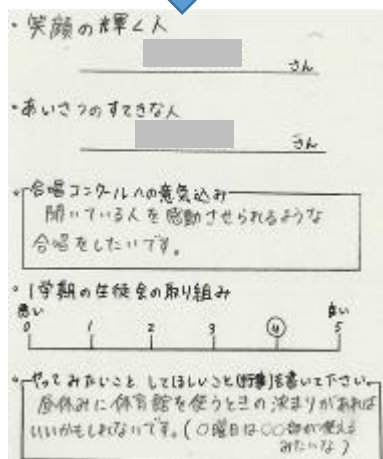 ・笑顔の輝く人
さん
・あいさつのすてきな人
さん
・合唱コンクールへの意気込み
聞いている人を感動させられるような
合唱をしたいです。
・1学期の生徒会の取り組み
悪い 良い
0 1 2 3 ④ 5
・やってみたいこと してほしいこと(行事)を書いて下さい。
昼休みに体育館を使うときの決まりがあれば
いいかもしれないです。(○曜日は○○部が使える
みたいな)